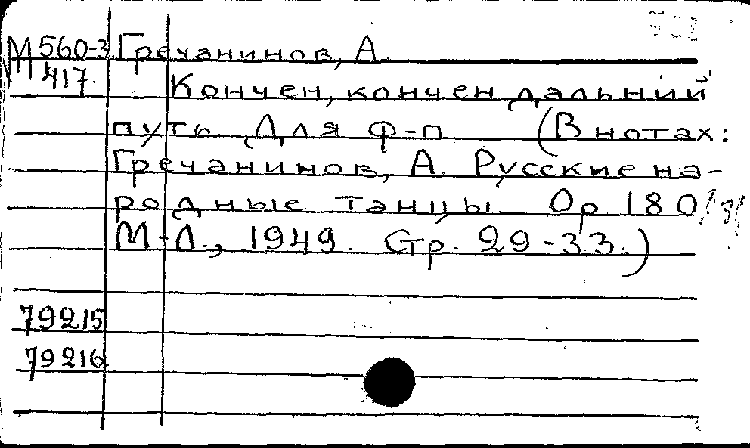 М 560-3 Гречанинов, А.
417. Кончен, кончен дальний
путь. Для ф-п (В нотах:
Гречанинов, А. Русские на-
родные танцы. Ор. 180/3/
М-Л., 1949. Стр. 29-33.)
79215
79216